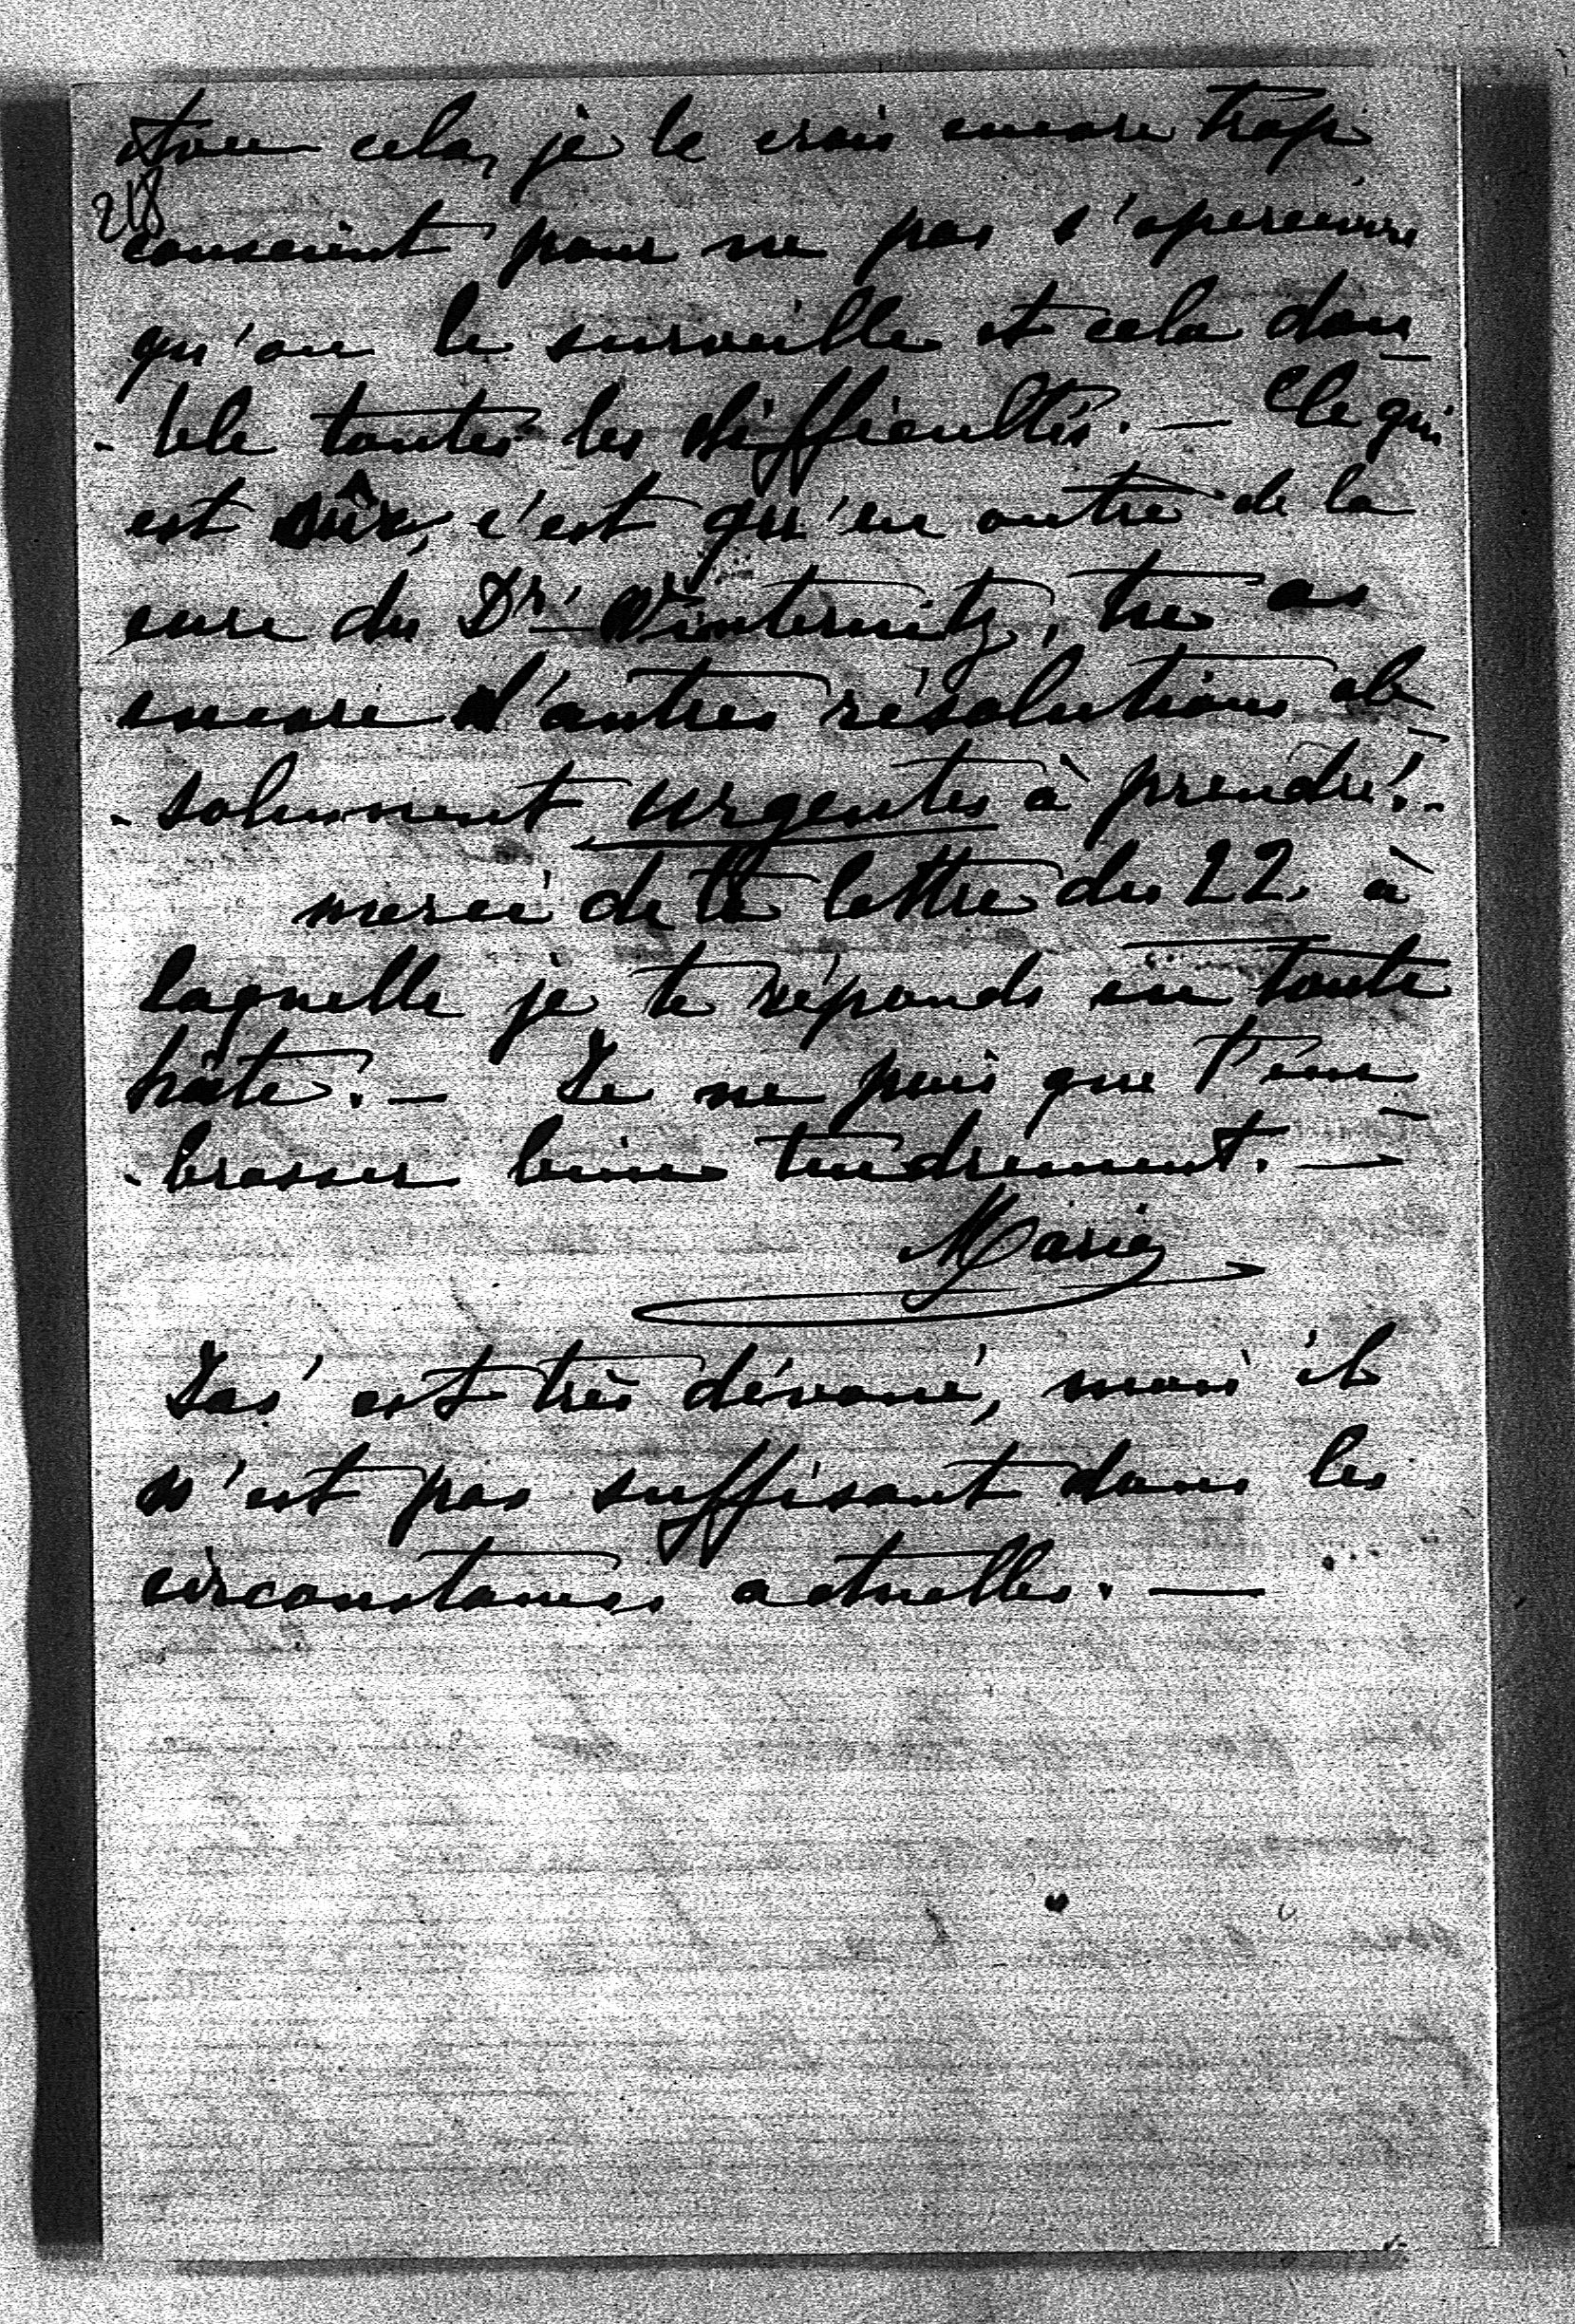 tout cela, je le crois encore trop
218
conscient pour ne pas s'apercevoir
qu'on le surveille et cela dou-
-ble toutes les difficultés. — Ce qui
est sûr, c'est qu'en outre de la
cure du Dr. Winternitz, tu as
encore d'autres résolutions ab-
-solument urgentes à prendre!-
merci de ta lettre du 22 à
laquelle je te réponds en toute
hâte. — Je ne puis que t'em-
-brasser bien tendrement. —
Marie
est très dévoué, mais il
n'est pas suffisant dans les
circonstances actuelles. —